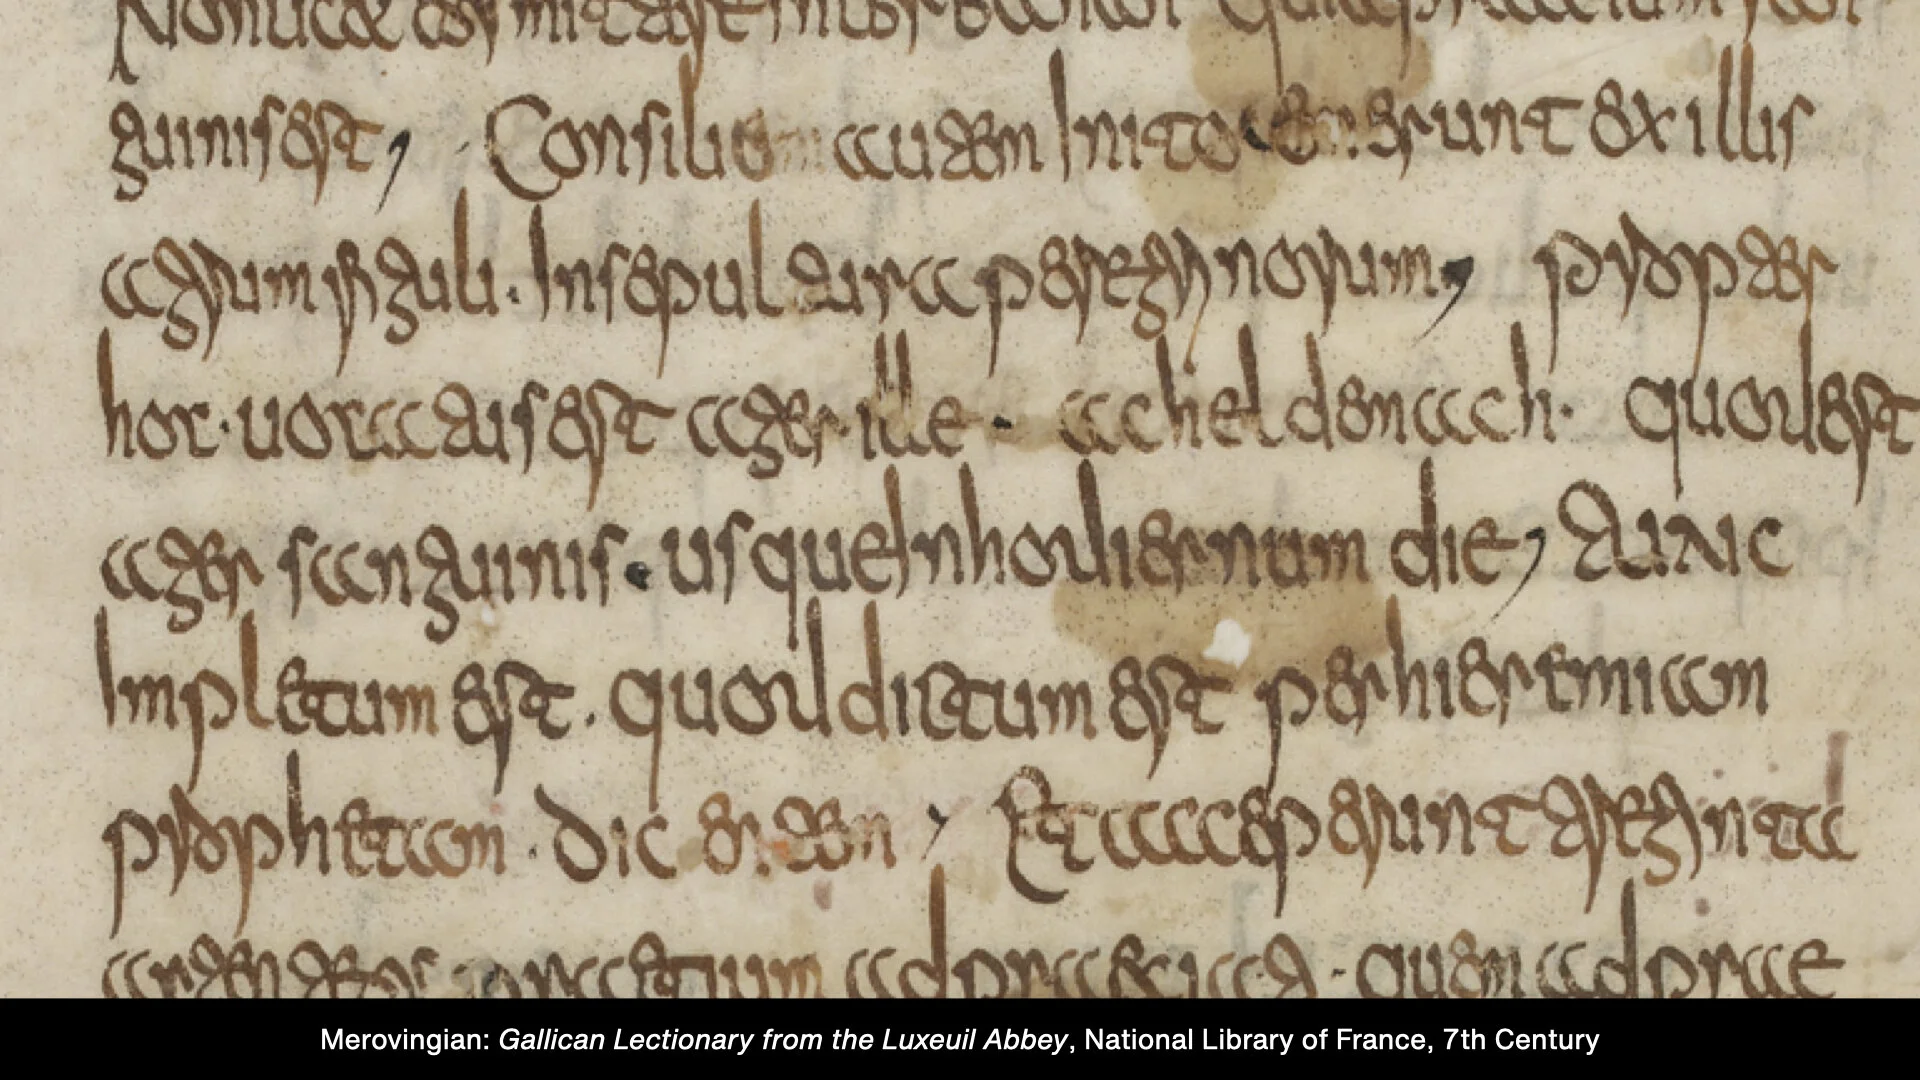 Non quia praetium san
guinis est, Consilio autem Inito emerunt ex illis
agrum figuli. In sepultura peregrinorum, propter
hoc. uocatus est ager ille. acheldemach. quod est
ager sanguinis. usque In hodiernum die, Tunc
Impletum est. quod dictum est per hieremiam
prophetam. Dicentem, Et acceperunt triginta
argenteos praetium adpraetiati. quem adprae
Merovingian: Gallican Lectionary from the Luxeuil Abbey, National Library of France, 7th Century